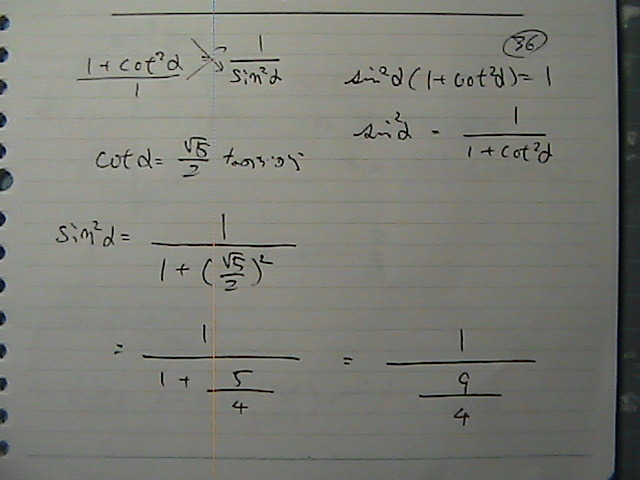 36
(1 + cot²α)/1 = 1/sin²α
sin²α(1 + cot²α) = 1
sin²α = 1/(1 + cot²α)
cot α = √5/2
sin²α = 1/(1 + (√5/2)²)
= 1/(1 + 5/4) = 1/(9/4)